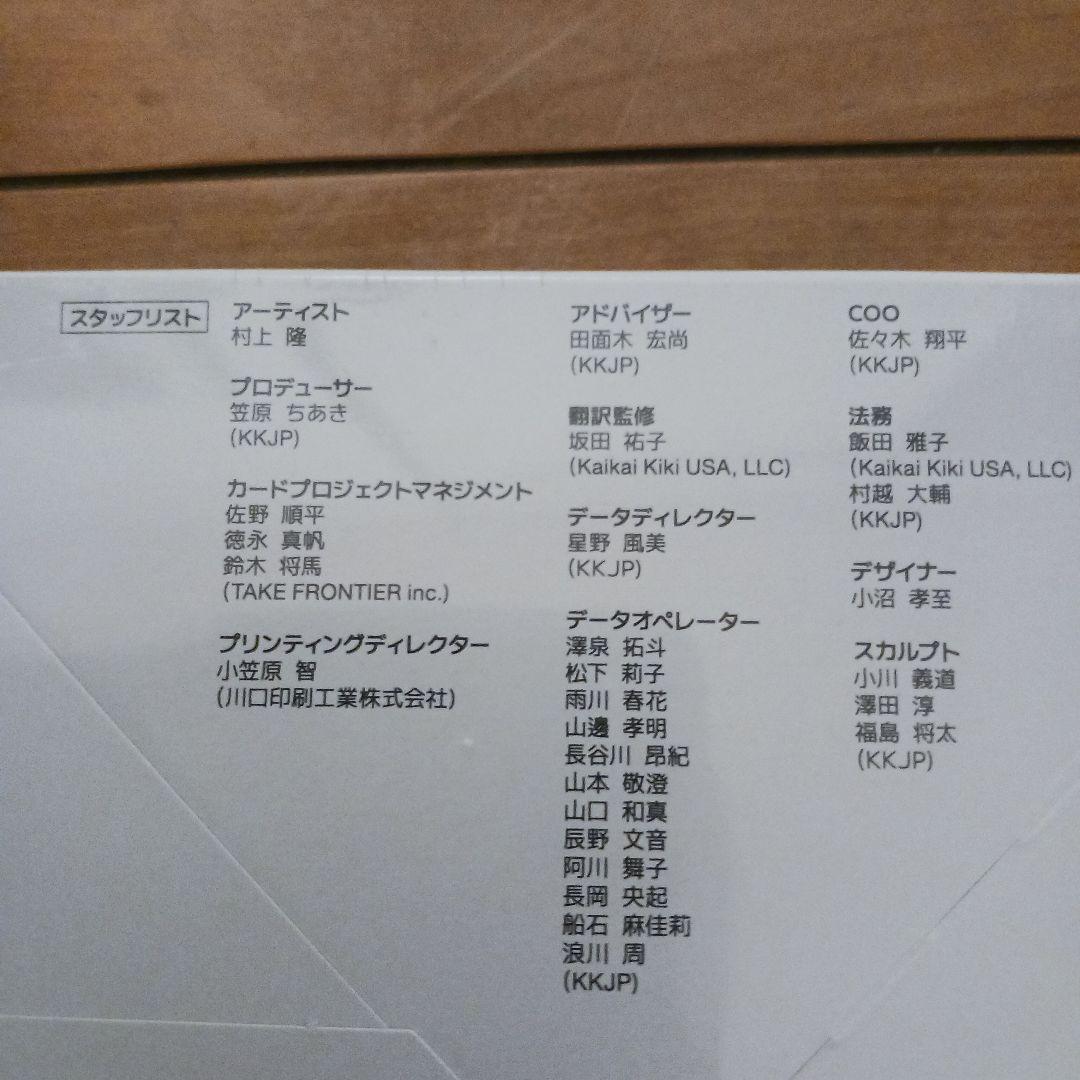 スタッフリスト
アーティスト
村上 隆
プロデューサー
笠原 ちあき
(KKJP)
カードプロジェクトマネジメント
佐野 順平
徳永 真帆
鈴木 将馬
(TAKE FRONTIER inc.)
プリンティングディレクター
小笠原 智
(川口印刷工業株式会社)
アドバイザー
田面木 宏尚
(KKJP)
翻訳監修
坂田 祐子
(Kaikai Kiki USA, LLC)
データディレクター
星野 風美
(KKJP)
データオペレーター
澤泉 拓斗
松下 莉子
雨川 春花
山邊 孝明
長谷川 昂紀
山本 敬澄
山口 和真
辰野 文音
阿川 舞子
長岡 央起
船石 麻佳莉
浪川 周
(KKJP)
COO
佐々木 翔平
(KKJP)
法務
飯田 雅子
(Kaikai Kiki USA, LLC)
村越 大輔
(KKJP)
デザイナー
小沼 孝至
スカルプト
小川 義道
澤田 淳
福島 将太
(KKJP)